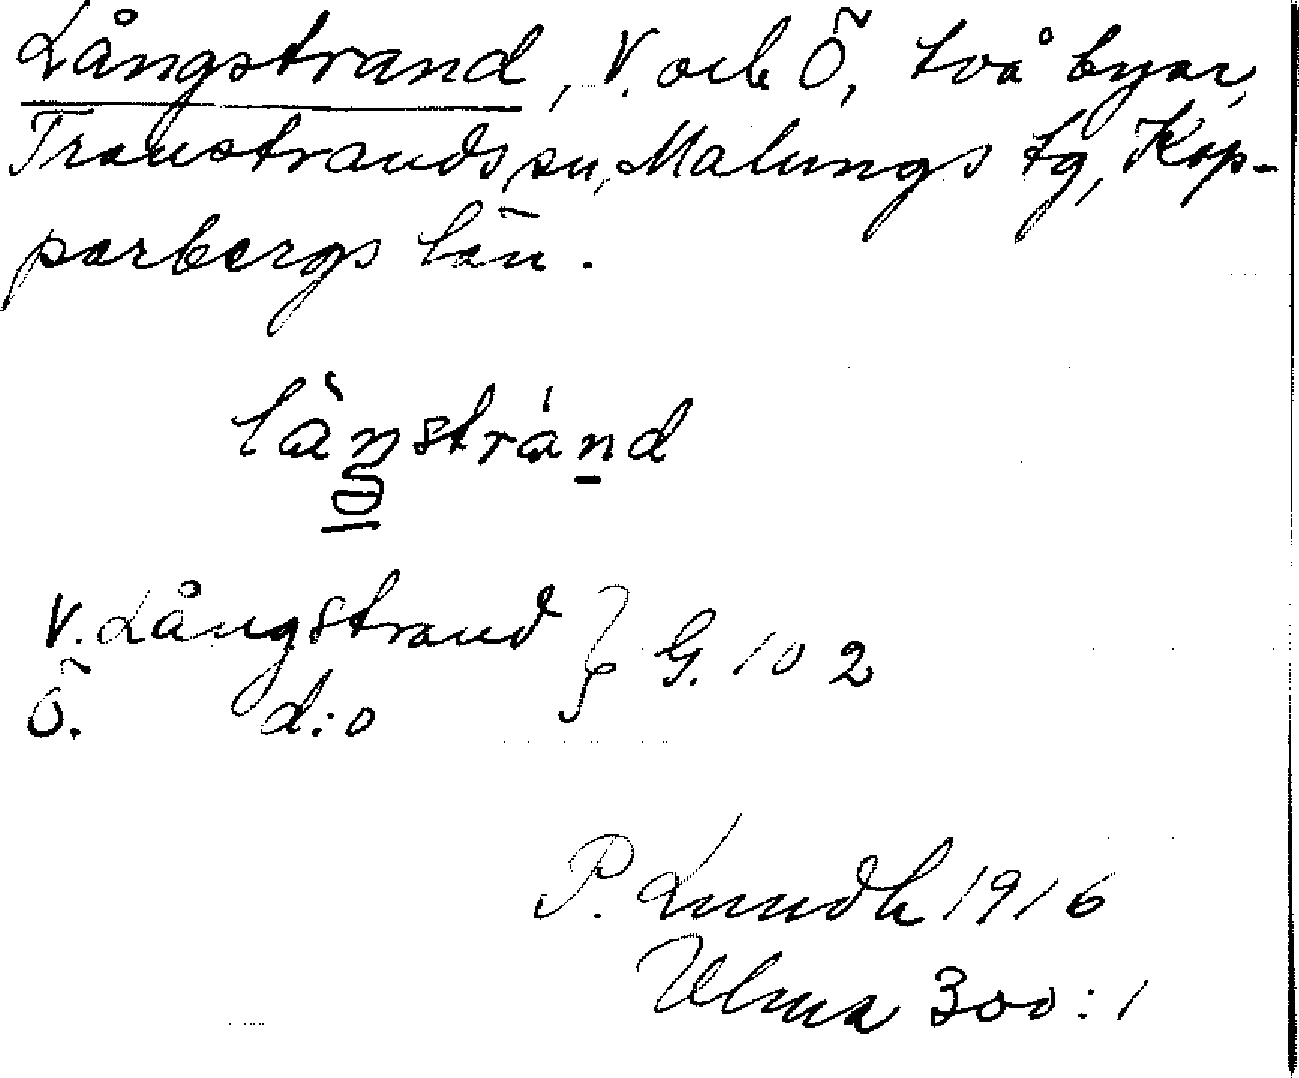 Långstrand, V. och Ö, två byar,
Transtrands sn, Malungs tg, Kop-
parbergs län.
V. Långstrand } G. 102
Ö. d:o
P. Lundh 1916
Ulma 300:1